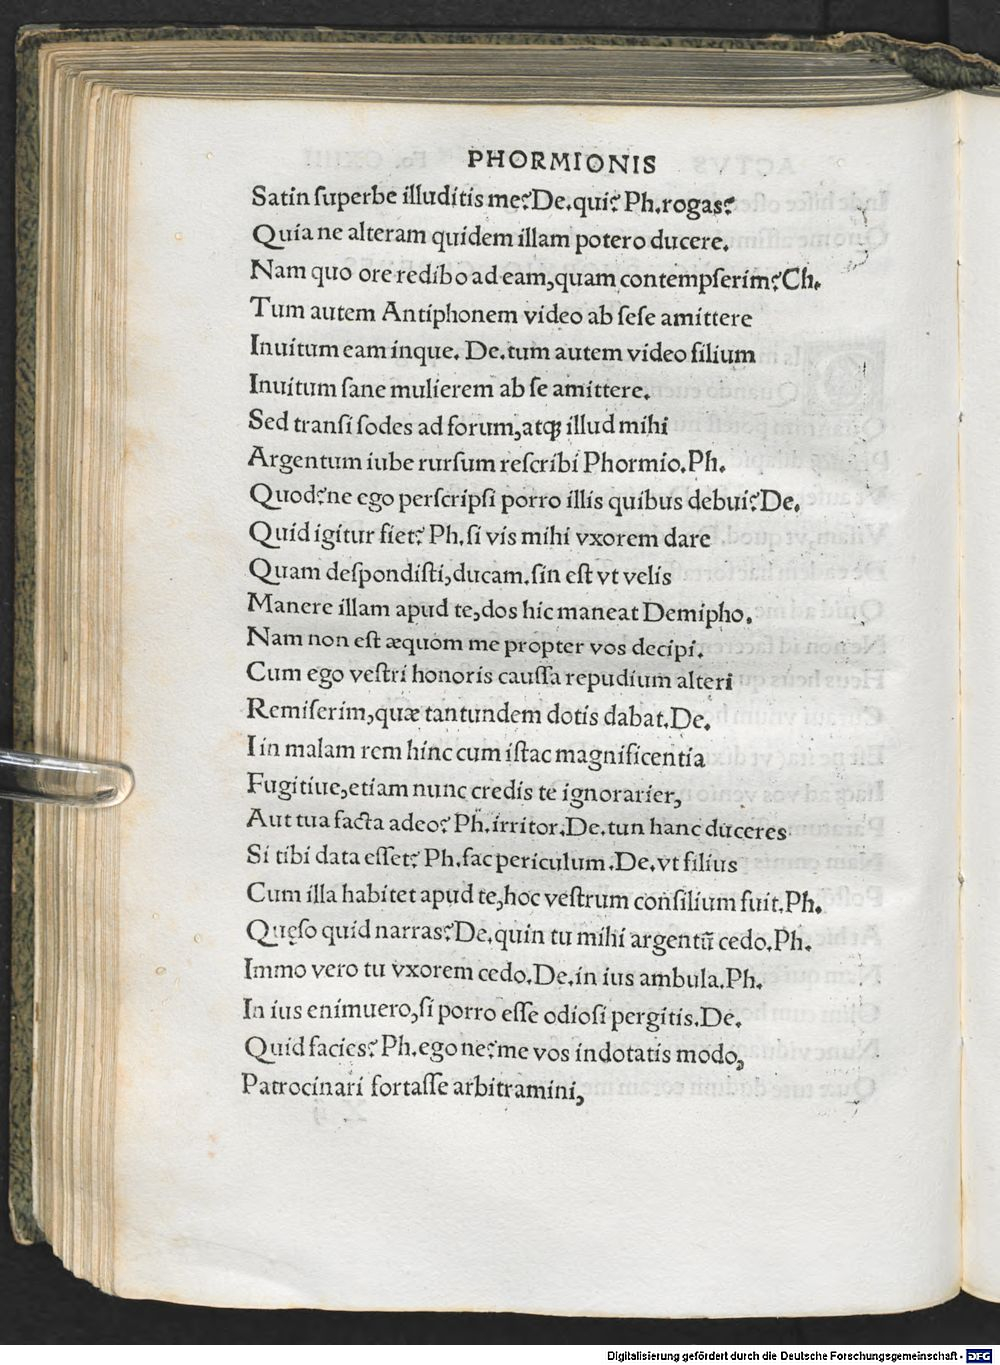 PHORMIONIS
Satin ſuperbe illuditis me? De. qui? Ph. rogas?
Quia ne alteram quidem illam potero ducere.
Nam quo ore redibo ad eam, quam contempſerim? Ch.
Tum autem Antiphonem video ab ſeſe amittere
Inuitum eam inque. De. tum autem video filium
Inuitum ſane mulierem ab ſe amittere.
Sed tranſi ſodes ad forum, atqꝫ illud mihi
Argentum iube rurſum reſcribi Phormio. Ph.
Quod? ne ego perſcripſi porro illis quibus debui? De.
Quid igitur fiet? Ph. ſi vis mihi vxorem dare
Quam deſpondiſti, ducam. ſin eſt vt velis
Manere illam apud te, dos hic maneat Demipho.
Nam non eſt æquom me propter vos decipi.
Cum ego veſtri honoris cauſſa repudium alteri
Remiſerim, quæ tantundem dotis dabat. De.
I in malam rem hinc cum iſtac magnificentia
Fugitiue, etiam nunc credis te ignorarier,
Aut tua facta adeo? Ph. irritor. De. tun hanc duceres
Si tibi data eſſet? Ph. fac periculum. De. vt filius
Cum illa habitet apud te, hoc veſtrum conſilium fuit. Ph.
Quęſo quid narras? De. quin tu mihi argentū cedo. Ph.
Immo vero tu vxorem cedo. De. in ius ambula. Ph.
In ius enimuero, ſi porro eſſe odioſi pergitis. De.
Quid facies? Ph. ego ne? me vos indotatis modo,
Patrocinari fortaſſe arbitramini,
Digitalisierung gefördert durch die Deutsche Forschungsgemeinschaft - DFG